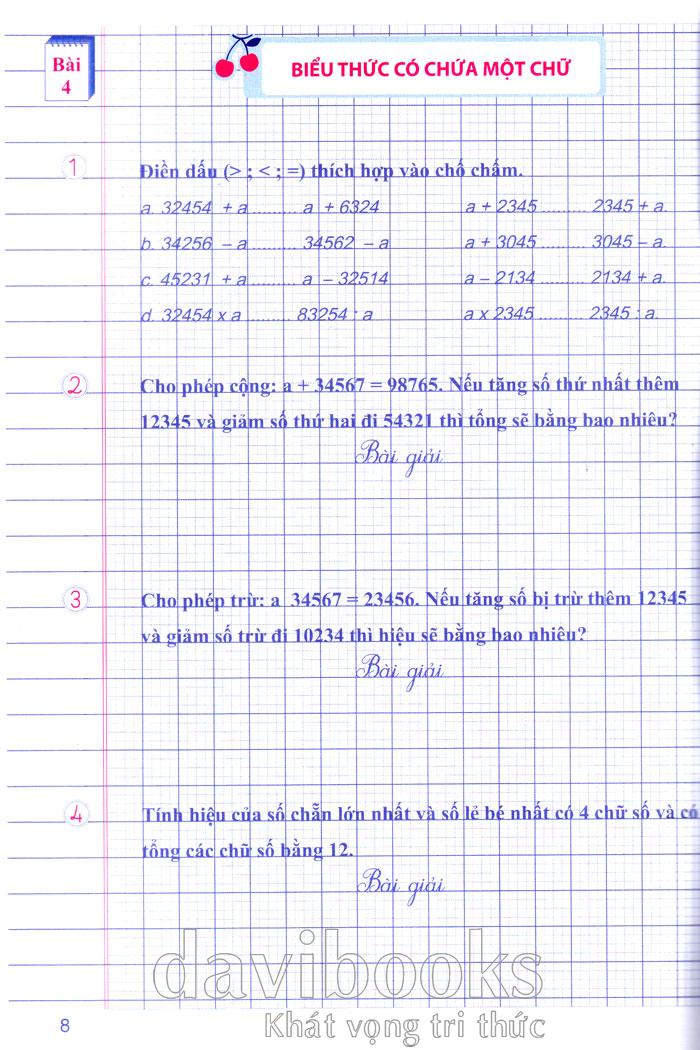 Bài
4
BIỂU THỨC CÓ CHỨA MỘT CHỮ
1
Điền dấu (> ; < ; =) thích hợp vào chố chấm.
a. 32454 + a .......... a + 6324 a + 2345 .......... 2345 + a.
b. 34256 – a .......... 34562 – a a + 3045 .......... 3045 – a.
c. 45231 + a .......... a – 32514 a – 2134 .......... 2134 + a.
d. 32454 x a .......... 83254 : a a x 2345 .......... 2345 : a.
2
Cho phép cộng: a + 34567 = 98765. Nếu tăng số thứ nhất thêm
12345 và giảm số thứ hai đi 54321 thì tổng sẽ bằng bao nhiêu?
Bài giải
3
Cho phép trừ: a 34567 = 23456. Nếu tăng số bị trừ thêm 12345
và giảm số trừ đi 10234 thì hiệu sẽ bằng bao nhiêu?
Bài giải
4
Tính hiệu của số chẵn lớn nhất và số lẻ bé nhất có 4 chữ số và có
tổng các chữ số bằng 12.
Bài giải
davibooks
Khát vọng tri thức
8